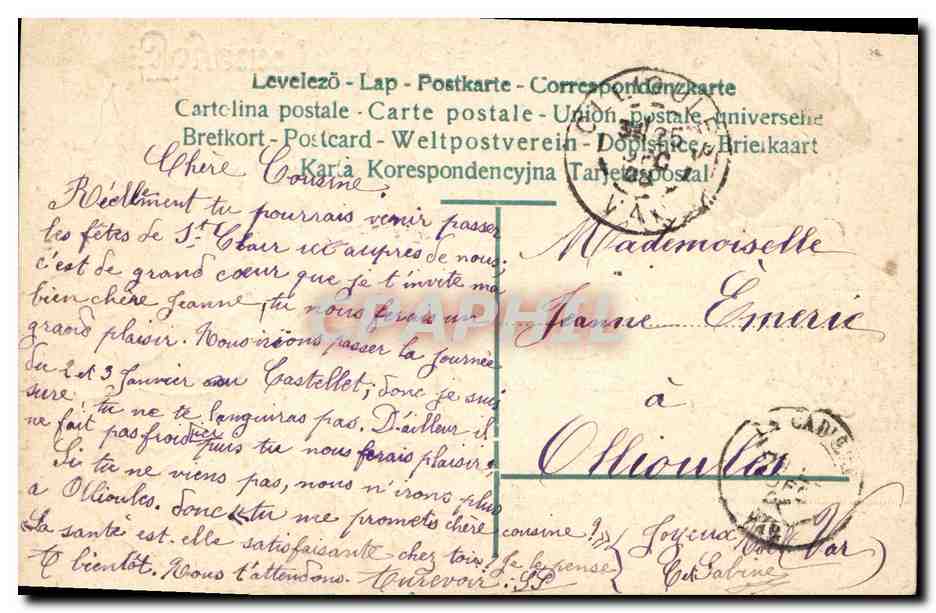 Levelező - Lap - Postkarte - Correspondenzkarte
Cartolina postale - Carte postale - Union postale universelle
Brefkort - Postcard - Weltpostverein - Dopisnice - Briefkaart
Karta Korespondencyjna Tarjeta postal
Chère Cousine.
Réellement tu pourrais venir passer
les fêtes de St Clair ici auprès de nous;
c'est de grand cœur que je t'invite ma
bien chère Jeanne, tu nous ferais un
grand plaisir. Nous irions passer la journée
du 2 et 3 Janvier au Castellet; donc je suis
sure tu ne te languiras pas. D'ailleur il
ne fait pas froid ici puis tu nous ferais plaisir.
Si tu ne viens pas, nous n'irons plus
à Ollioules. donc tu me promets chère cousine!
La santé est-elle satisfaisante chez toi? Je le pense
A bientôt. Nous t'attendons. Aurevoir.
Mademoiselle
Jeanne Émeric
à
Ollioules
Var
Joyeux Noël
Sabine
OLLIOULES
25
DEC
08
VAR
LA CADIÈRE
VAR
CPAPHIL